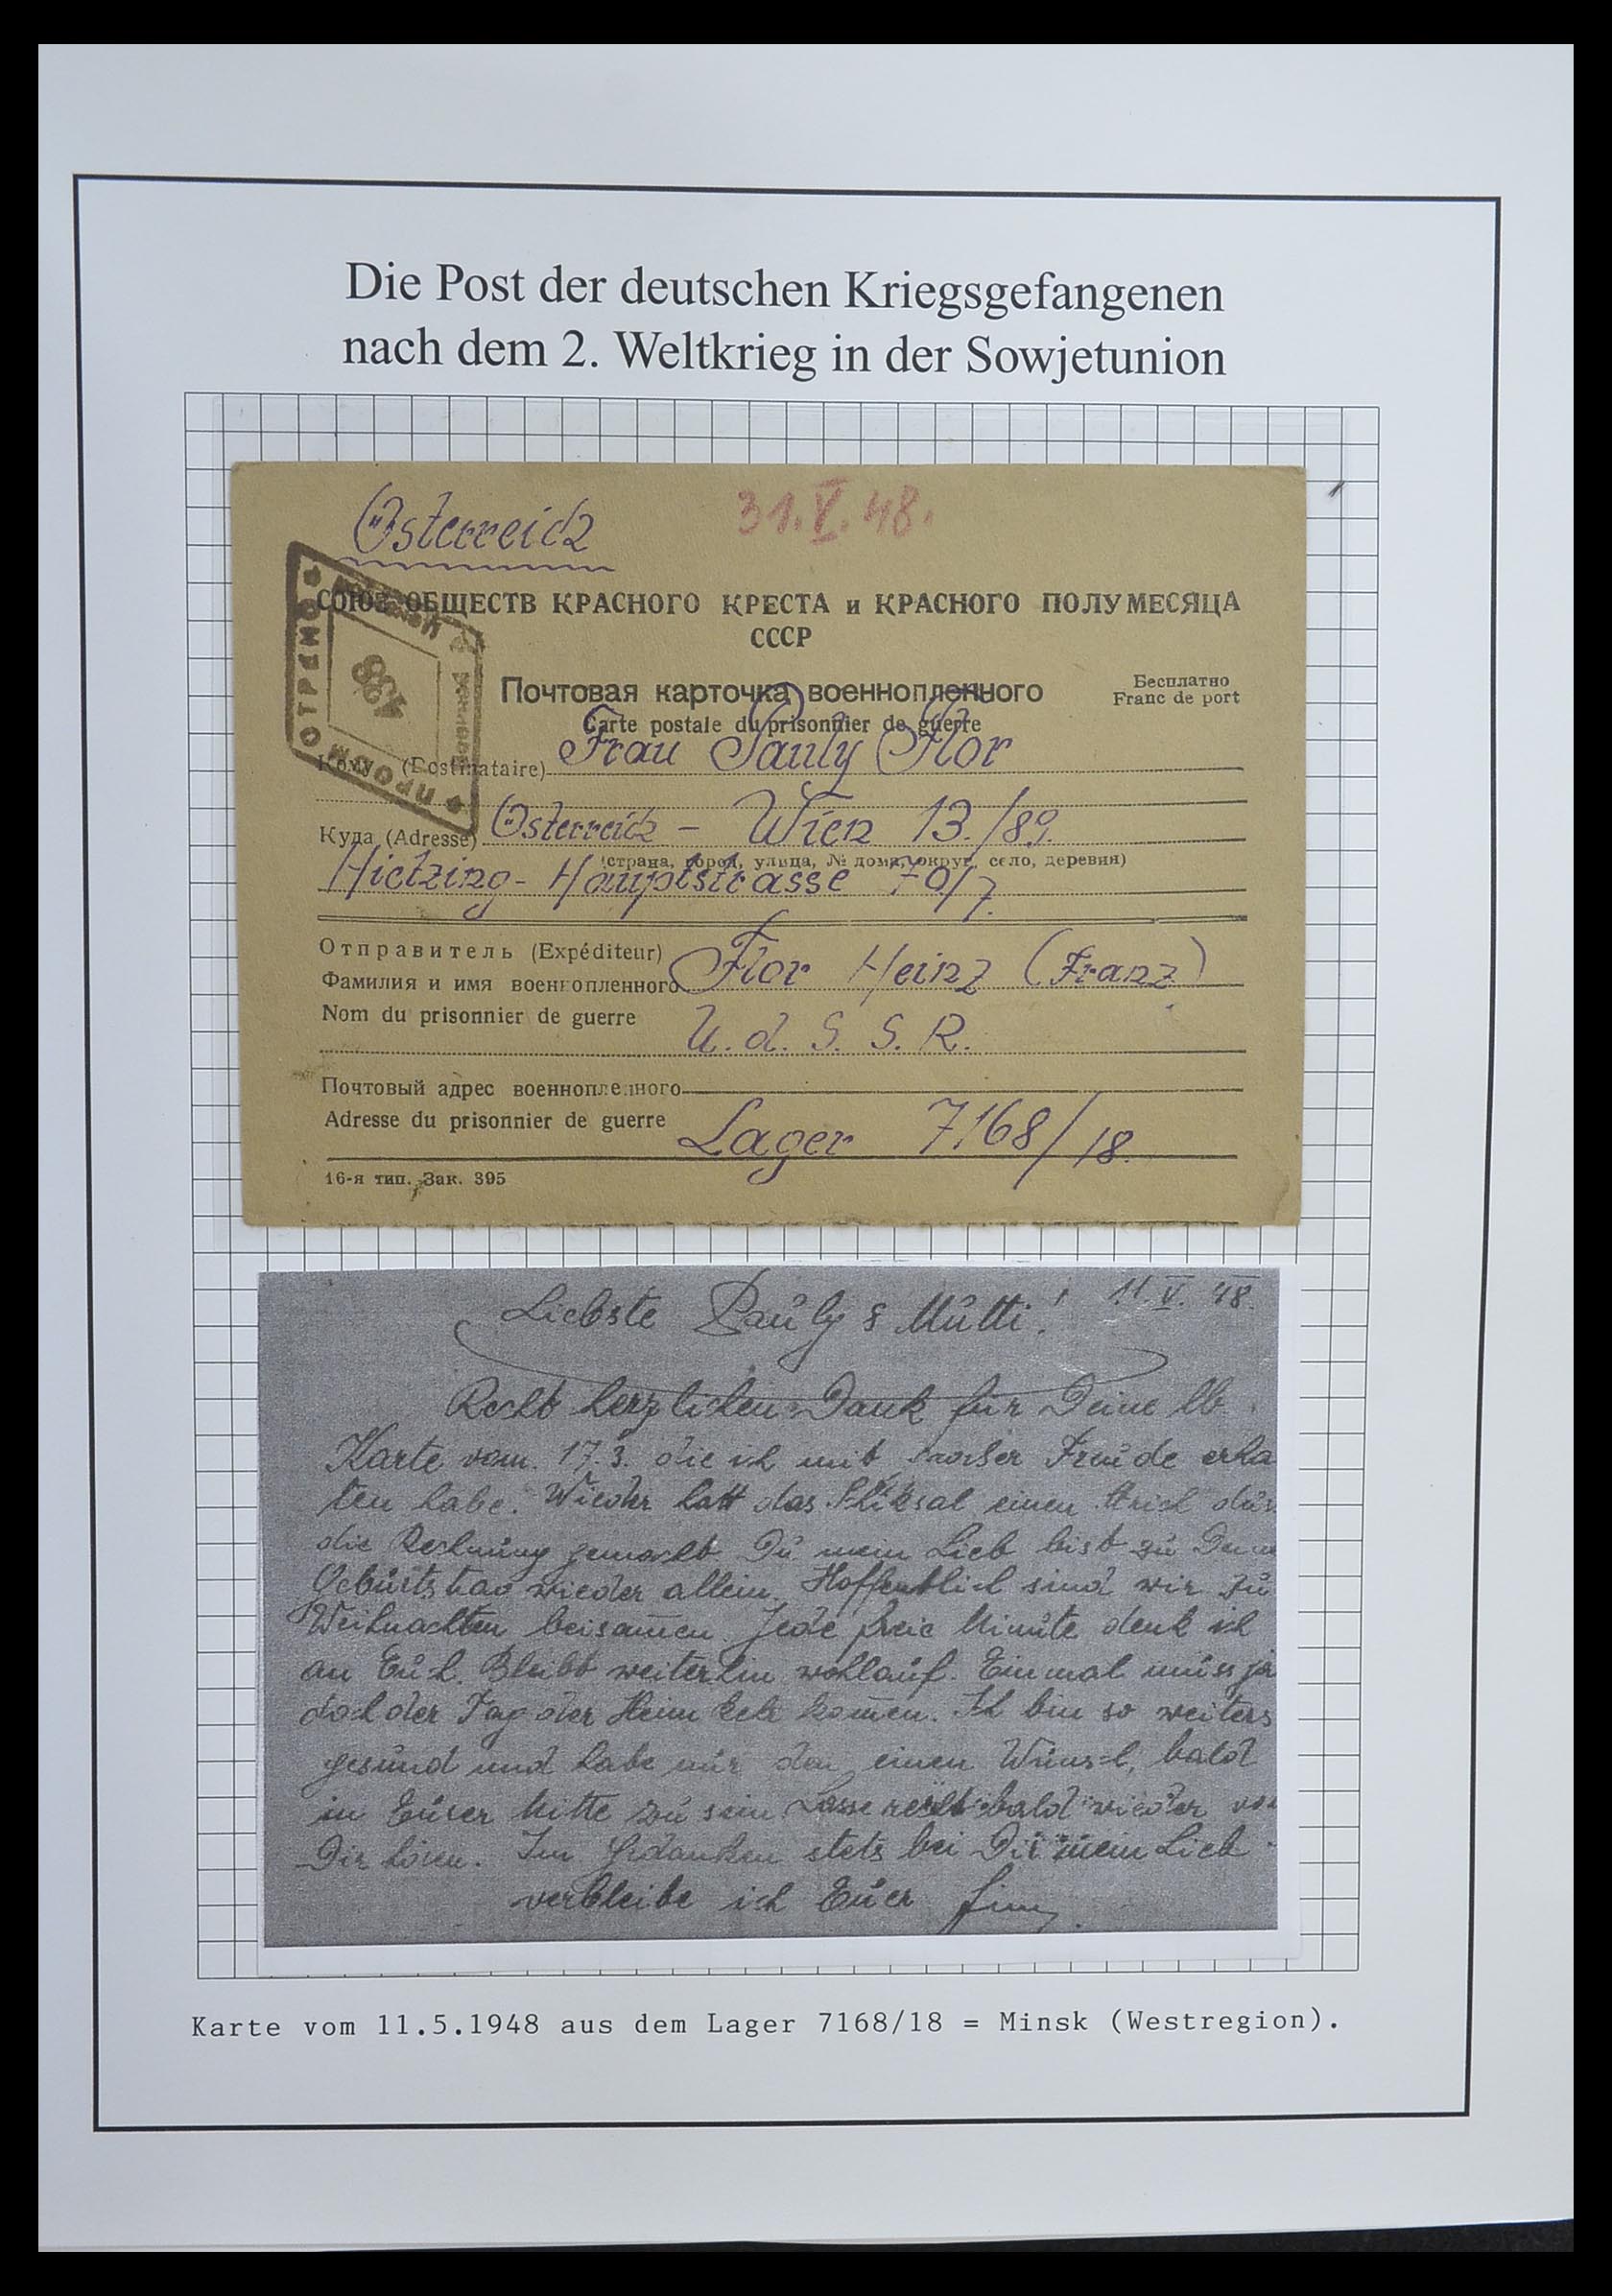 Die Post der deutschen Kriegsgefangenen
nach dem 2. Weltkrieg in der Sowjetunion
Österreich
31.V.48.
СОЮЗ ОБЩЕСТВ КРАСНОГО КРЕСТА и КРАСНОГО ПОЛУМЕСЯЦА
СССР
Почтовая карточка военнопленного
Бесплатно
Carte postale du prisonnier de guerre
Franc de port
ПРОСМОТРЕНО
Кому (Destinataire) Frau Pauly Flor
Куда (Adresse) Österreich - Wien 13./89.
(страна, город, улица, № дома, округ, село, деревня)
Hietzing-Hauptstrasse 70/7.
Отправитель (Expéditeur)
Фамилия и имя военнопленного Flor Heinz (Franz)
Nom du prisonnier de guerre
U. d. S. S. R.
Почтовый адрес военнопленного
Adresse du prisonnier de guerre Lager 7168/18.
16-я тип. Зак. 395
11.V.48.
Liebste Pauly & Mutti!
Recht herzlichen Dank für Deine lb.
Karte vom 17.3. die ich mit grosser Freude erha
ten habe. Wieder hatt das Schiksal einen Strich dur
die Rechnung gemacht. Du mein Lieb bist zu
Geburtstag wieder allein. Hoffentlich sind wir zu
Weihnachten beisam̅en. Jede freie Minute denk ich
an Euch. Bleibt weiterhin wohlauf. Einmal muss ja
doch der Tag der Heimkehr kom̅en. Ich bin so weiters
gesund und habe nur den einen Wunsch, bald
in Euser Mitte zu sein. Lasse recht bald wieder von
Dir hören. Im Gedanken stets bei Dir mein Lieb
verbleibe ich Euer
Karte vom 11.5.1948 aus dem Lager 7168/18 = Minsk (Westregion).